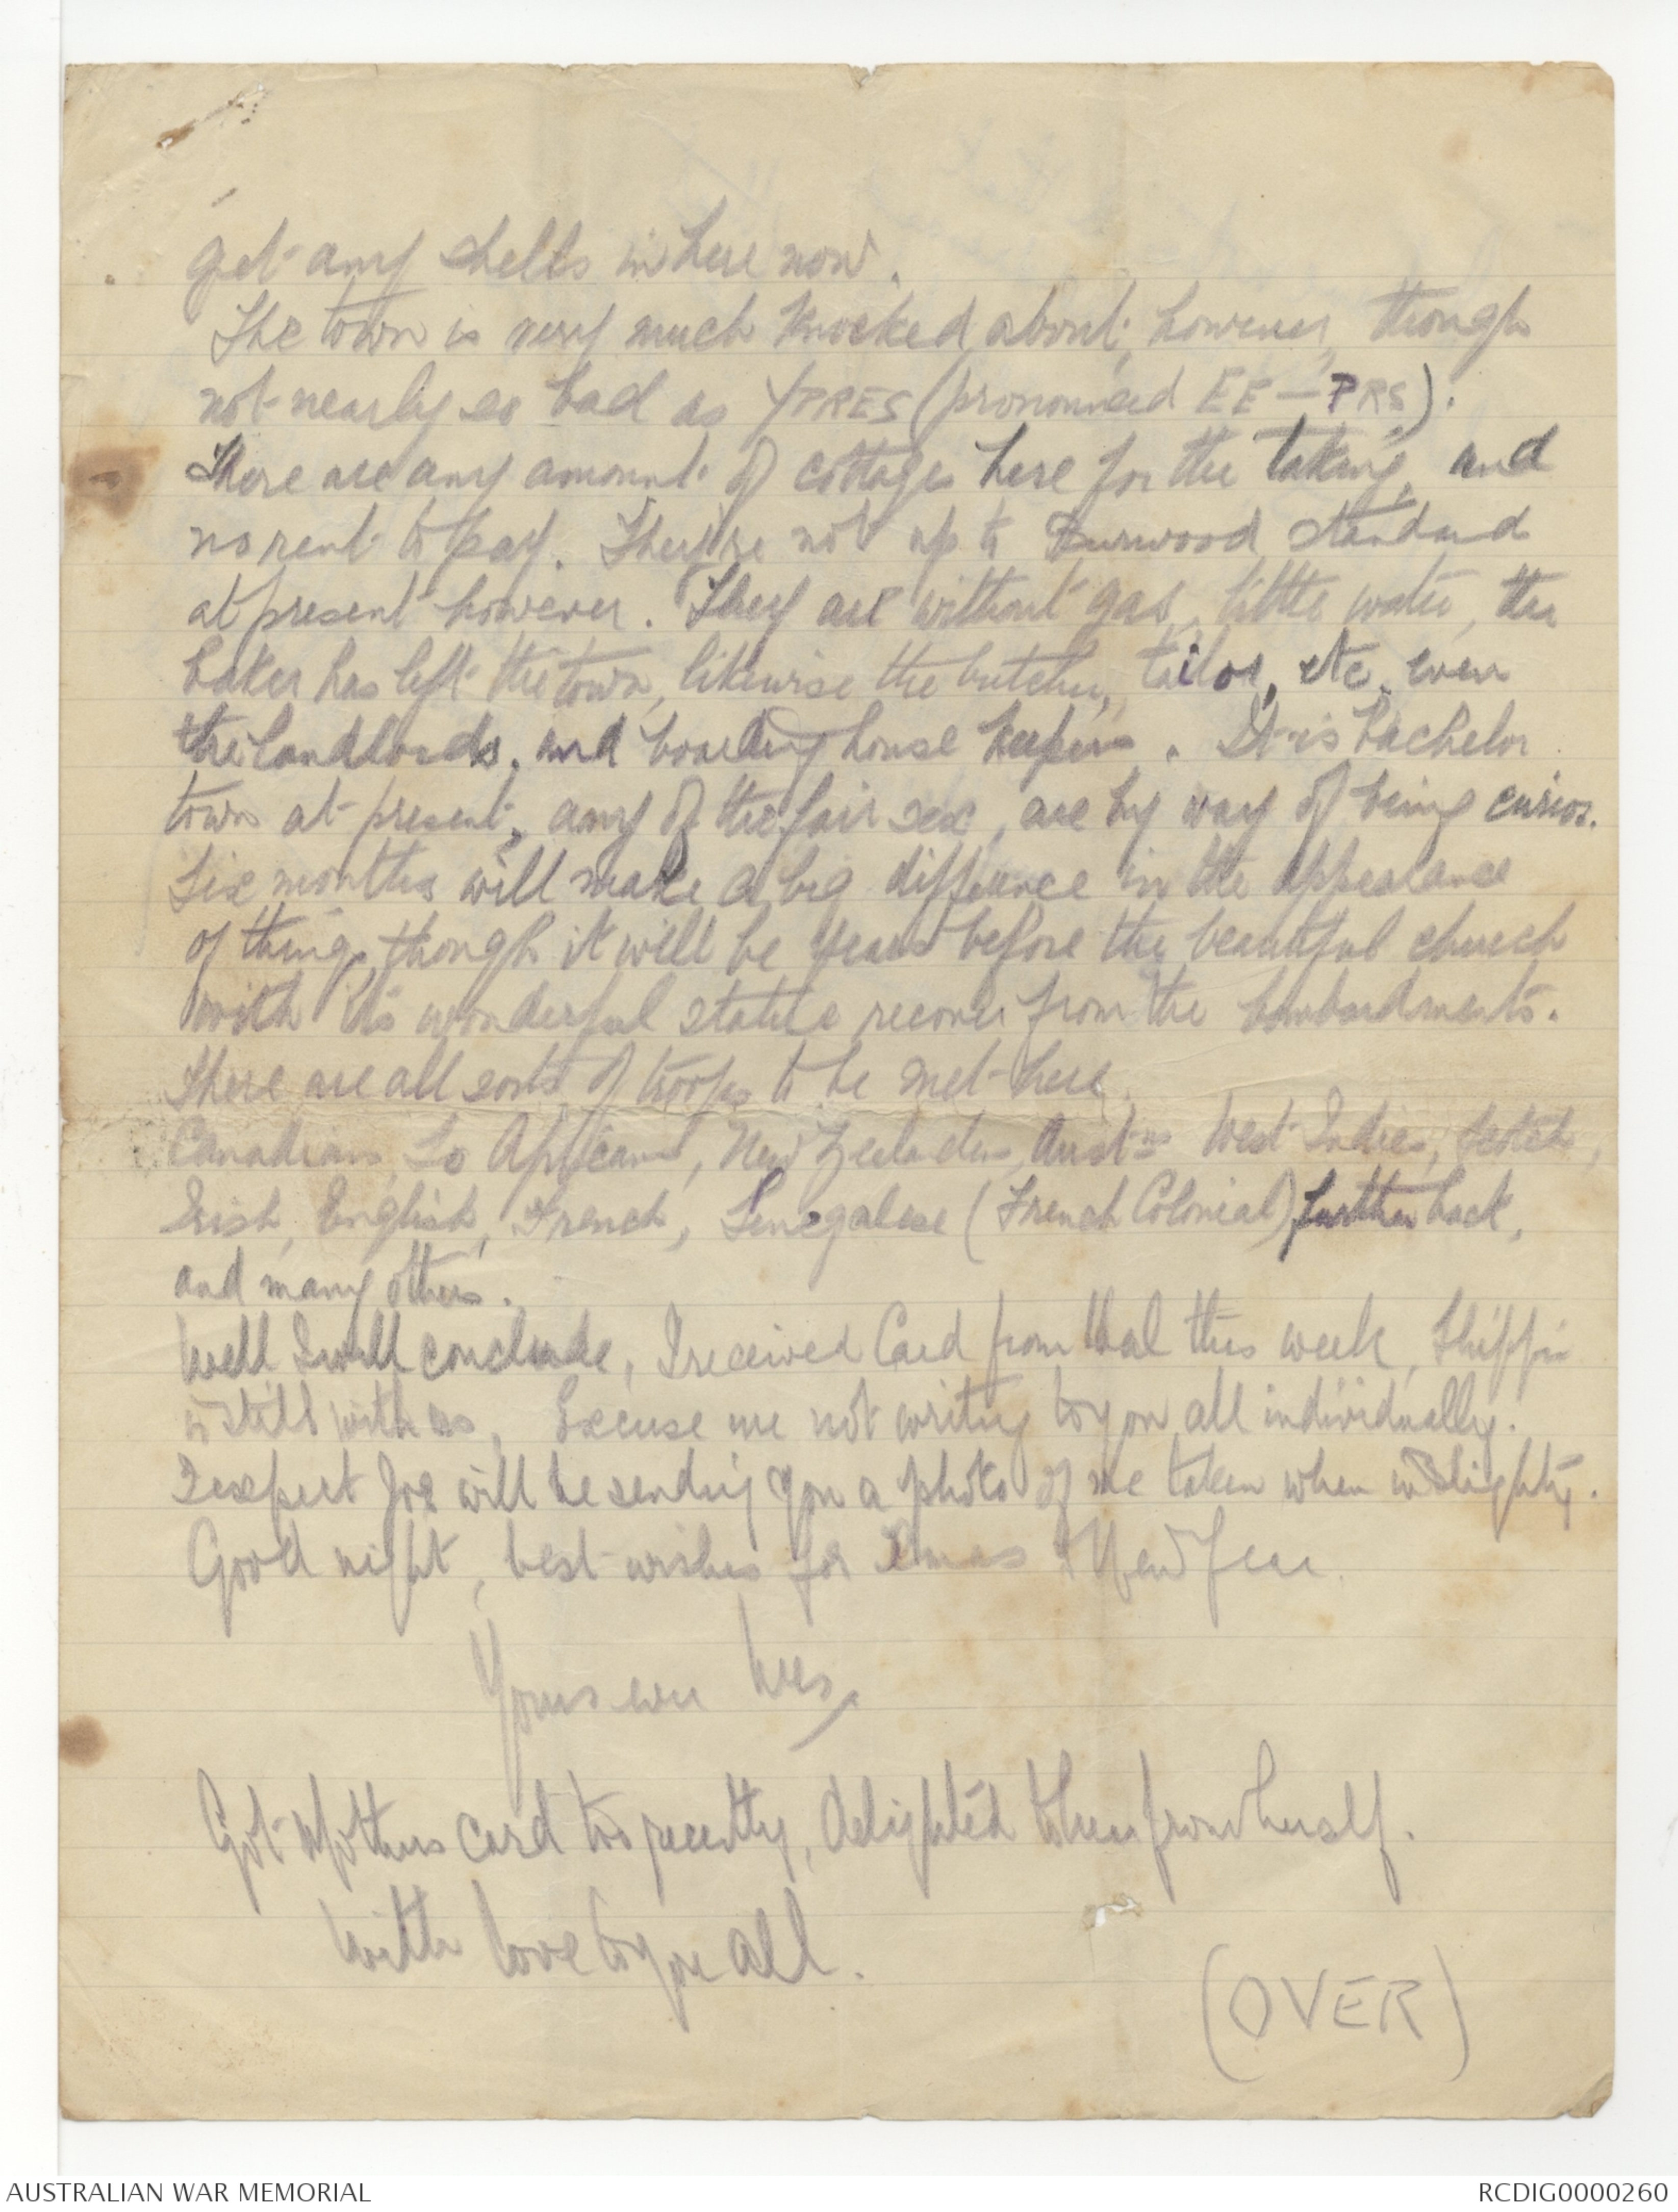 get any shells in here now.
The town is very much knocked about, however, though
not nearly so bad as YPRES (pronounced EE—PRS).
There are any amount of cottages here for the taking, and
no rent to pay. They're not up to Burwood standard
at present however. They are without gas, little water, the
baker has left the town, likewise the butcher, tailor, etc. even
the landlords, and boarding house keepers. It is bachelor
town at present, any of the fair sex, are by way of being curios.
Six months will make a big difference in the appearance
of things, though it will be years before the beautiful church
with its wonderful statue recover from the bombardments.
There are all sorts of troops to be met here.
Canadians, So Africans, New Zealanders, Austns West Indies, Scotch,
Irish, English, French, Senegalese (French Colonial) further back,
and many others.
Well I will conclude, I received Card from Hal this week,
is still with us. Excuse me not writing to you all individually.
I expect Joe will be sending you a photo of me taken when in Blighty.
Good night, best wishes for Xmas & New Year.
Yours ever Wes.
Got Mothers card too recently, delighted to hear from herself.
With love to you all.
(OVER)
AUSTRALIAN WAR MEMORIAL
RCDIG0000260